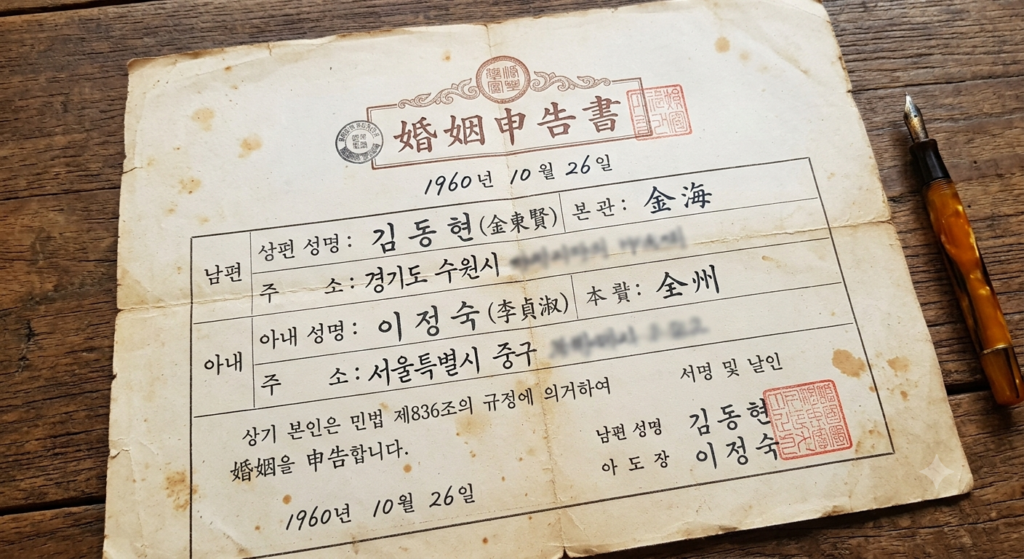 婚姻申告書
1960년 10월 26일
남편
상편 성명: 김동현(金東賢) 본관: 金海
주 소: 경기도 수원시
아내
아내 성명: 이정숙(李貞淑) 本貫: 全州
주 소: 서울특별시 중구
상기 본인은 민법 제836조의 규정에 의거하여
婚姻을 申告합니다.
1960년 10월 26일
서명 및 날인
남편 성명 김동현
아 도 장 이정숙